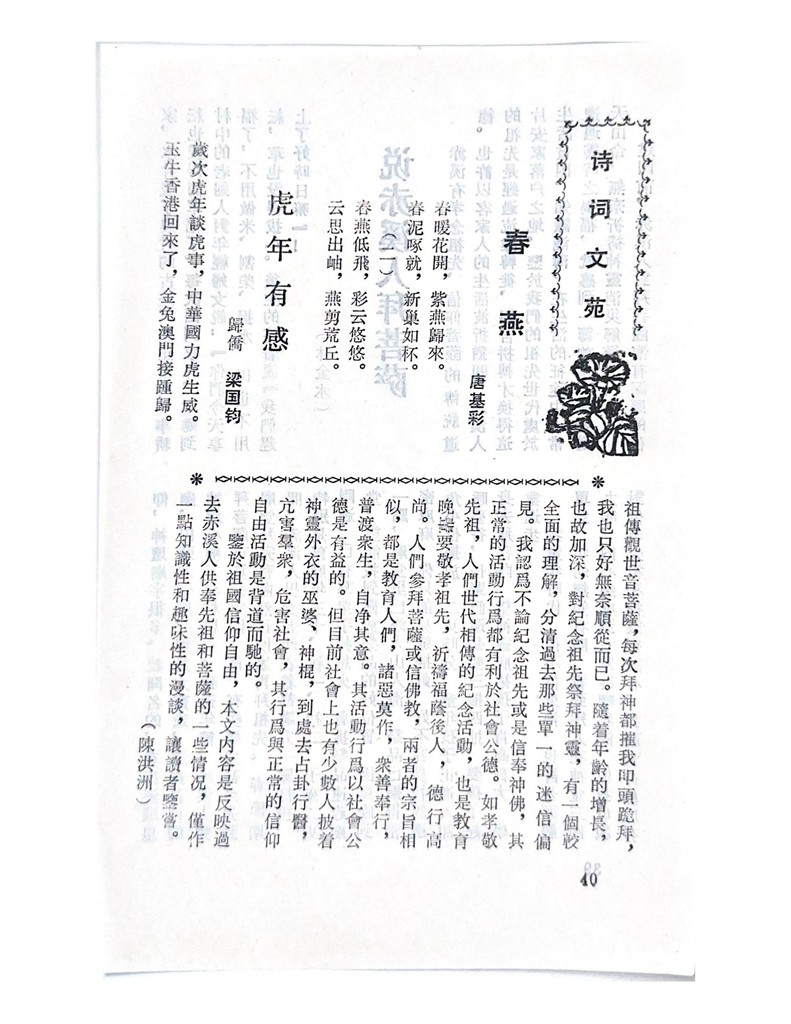 诗词文苑
春燕
唐基彩
春暖花開，紫燕歸來。
春泥啄就，新巢如杯。
（二）
春燕低飛，彩云悠悠。
云思出岫，燕剪荒丘。
虎年有感
歸僑 梁国钧
歲次虎年談虎事，中華國力虎生威。
玉牛香港回來了，金兔澳門接踵歸。
祖傳觀世音菩薩，每次拜神都摧我叩頭跪拜，
我也只好無奈順從而已。隨着年齡的增長，
也故加深，對紀念祖先祭拜神靈，有一個較
全面的理解，分清過去那些單一的迷信偏
見。我認爲不論紀念祖先或是信奉神佛，其
正常的活動行爲都有利於社會公德。如孝敬
先祖，人們世代相傳的紀念活動，也是教育
晚輩要敬孝祖先，祈禱福蔭後人，德行高
尚。人們參拜菩薩或信佛教，兩者的宗旨相
似，都是教育人們，諸惡莫作，衆善奉行，
普渡衆生，自净其意。其活動行爲以社會公
德是有益的。但目前社會上也有少數人披着
神靈外衣的巫婆、神棍，到處去占卦行醫，
亢害羣衆，危害社會，其行爲與正常的信仰
自由活動是背道而馳的。
鑒於祖國信仰自由，本文内容是反映過
去赤溪人供奉先祖和菩薩的一些情况，僅作
一點知識性和趣味性的漫談，讓讀者鑒嘗。
（陳洪洲）
40